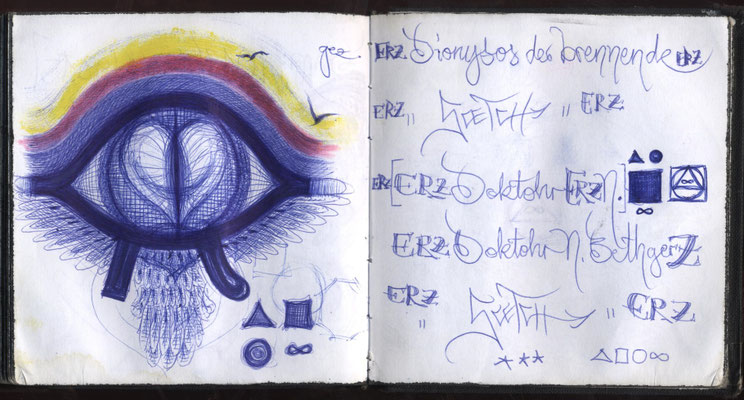 gez.
ERZ Dionysos der brennende ERZ
ERZ " SCETCH " ERZ
ERZ [ERZ Doktohr ERZ N.]
ERZ Doktohr N. Bethge Z
ERZ " SCETCH " ERZ
***